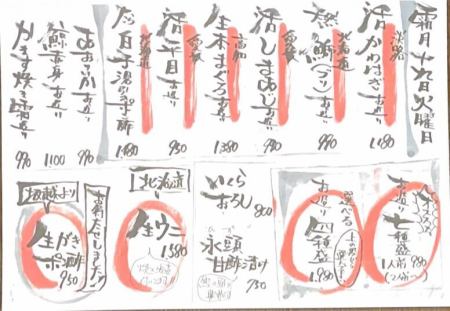 霜月十九日火曜日
淡路
活かわはぎお造り
1,180
北海道
鰤(ブリ)お造り
990
愛媛
活しまあじお造り
990
高知
生本まぐろお造り
1,380
愛媛
活平目お造り
950
北海道
白子湯引きポン酢
1,180
あおりいかお造り
990
鯨赤身お造り
1100
かます焼き霜造り
990
お造り七種盛
1人前 980
(2人前〜)
選べる
お造り四種盛
1,980
いくらおろし
800
氷頭
甘酢漬け
750
北海道
生ウニ
1580
お待たせしました!!
坂越より
生がき
ポン酢
950